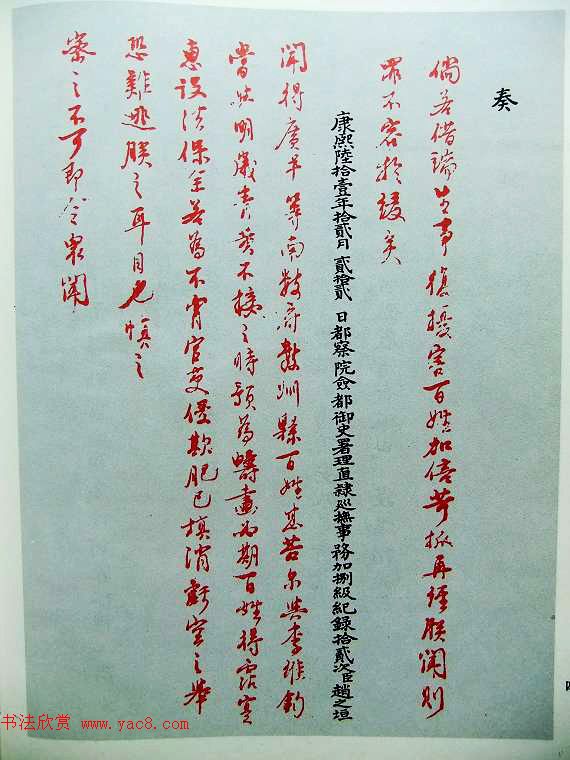 奏
倘若借端生事復擾害百姓加倍苛派再經朕聞則
罪不容於緩矣
康熙陸拾壹年拾貳月 貳拾貳 日都察院僉都御史署理直隸巡撫事務加捌級紀錄拾貳次臣趙之垣
聞得廣平等南數府數州縣百姓甚苦尔與李維鈞
明歲青黃不接之時預為疇畫必期百姓得霑實
惠設法保全若為不肖官吏侵欺肥己填消虧空之舉
恐難逃朕之耳目也慎之
密之不可即令眾聞
书法欣赏 www.yac8.com